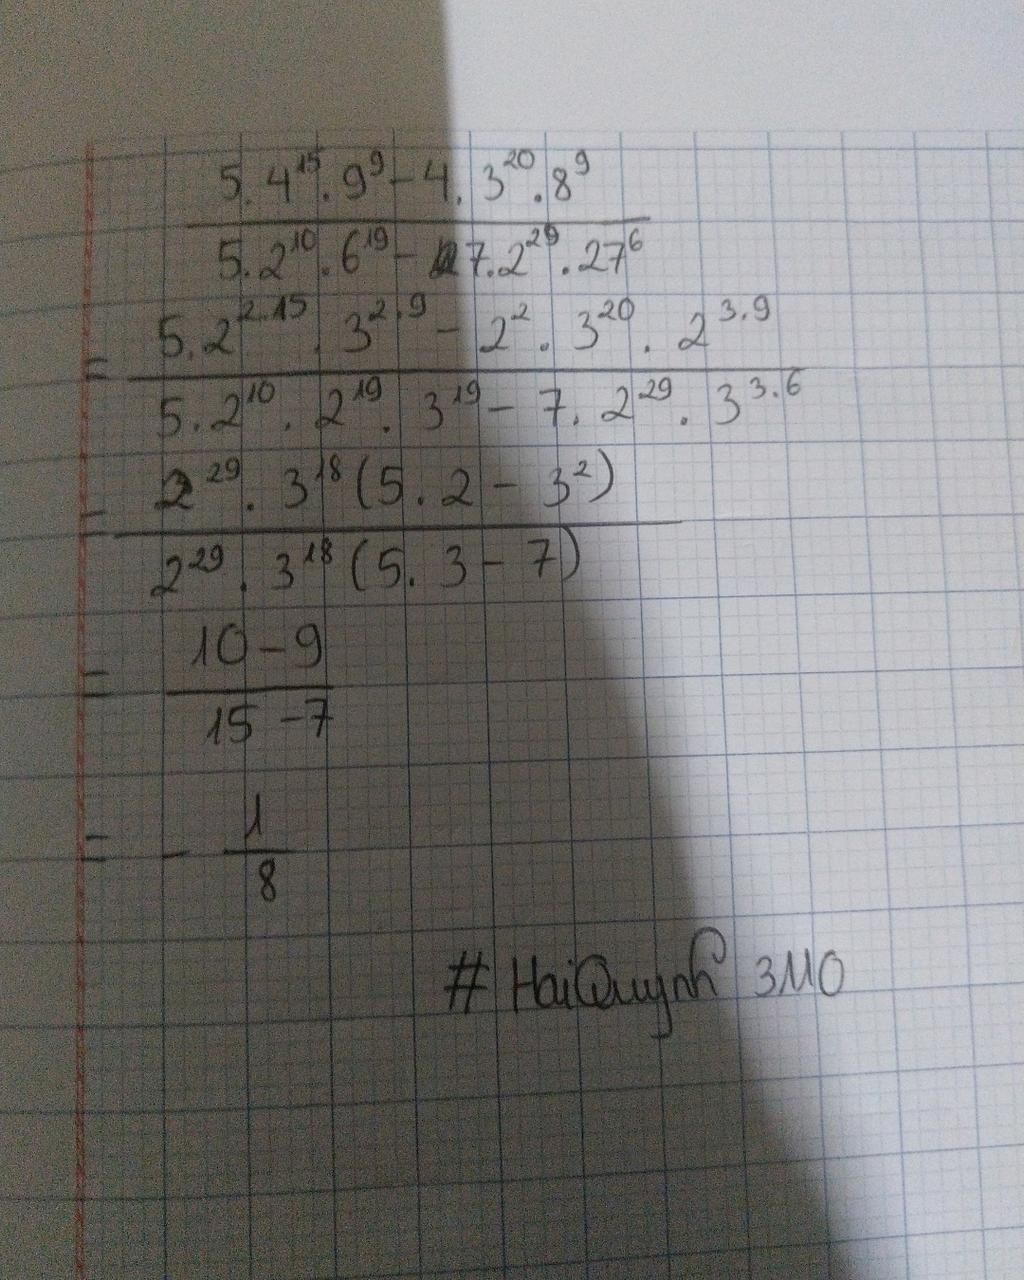 5.4¹⁵.9⁹-4.3²⁰.8⁹
5.2¹⁰.6¹⁹-7.2²⁹.27⁶
5.2²·¹⁵.3²·⁹-2².3²⁰.2³·⁹
=
5.2¹⁰.2¹⁹.3¹⁹-7.2²⁹.3³·⁶
2²⁹.3¹⁸(5.2-3²)
=
2²⁹.3¹⁸(5.3-7)
10-9
=
15-7
1
= -
8
#HaiQuynh 3MO